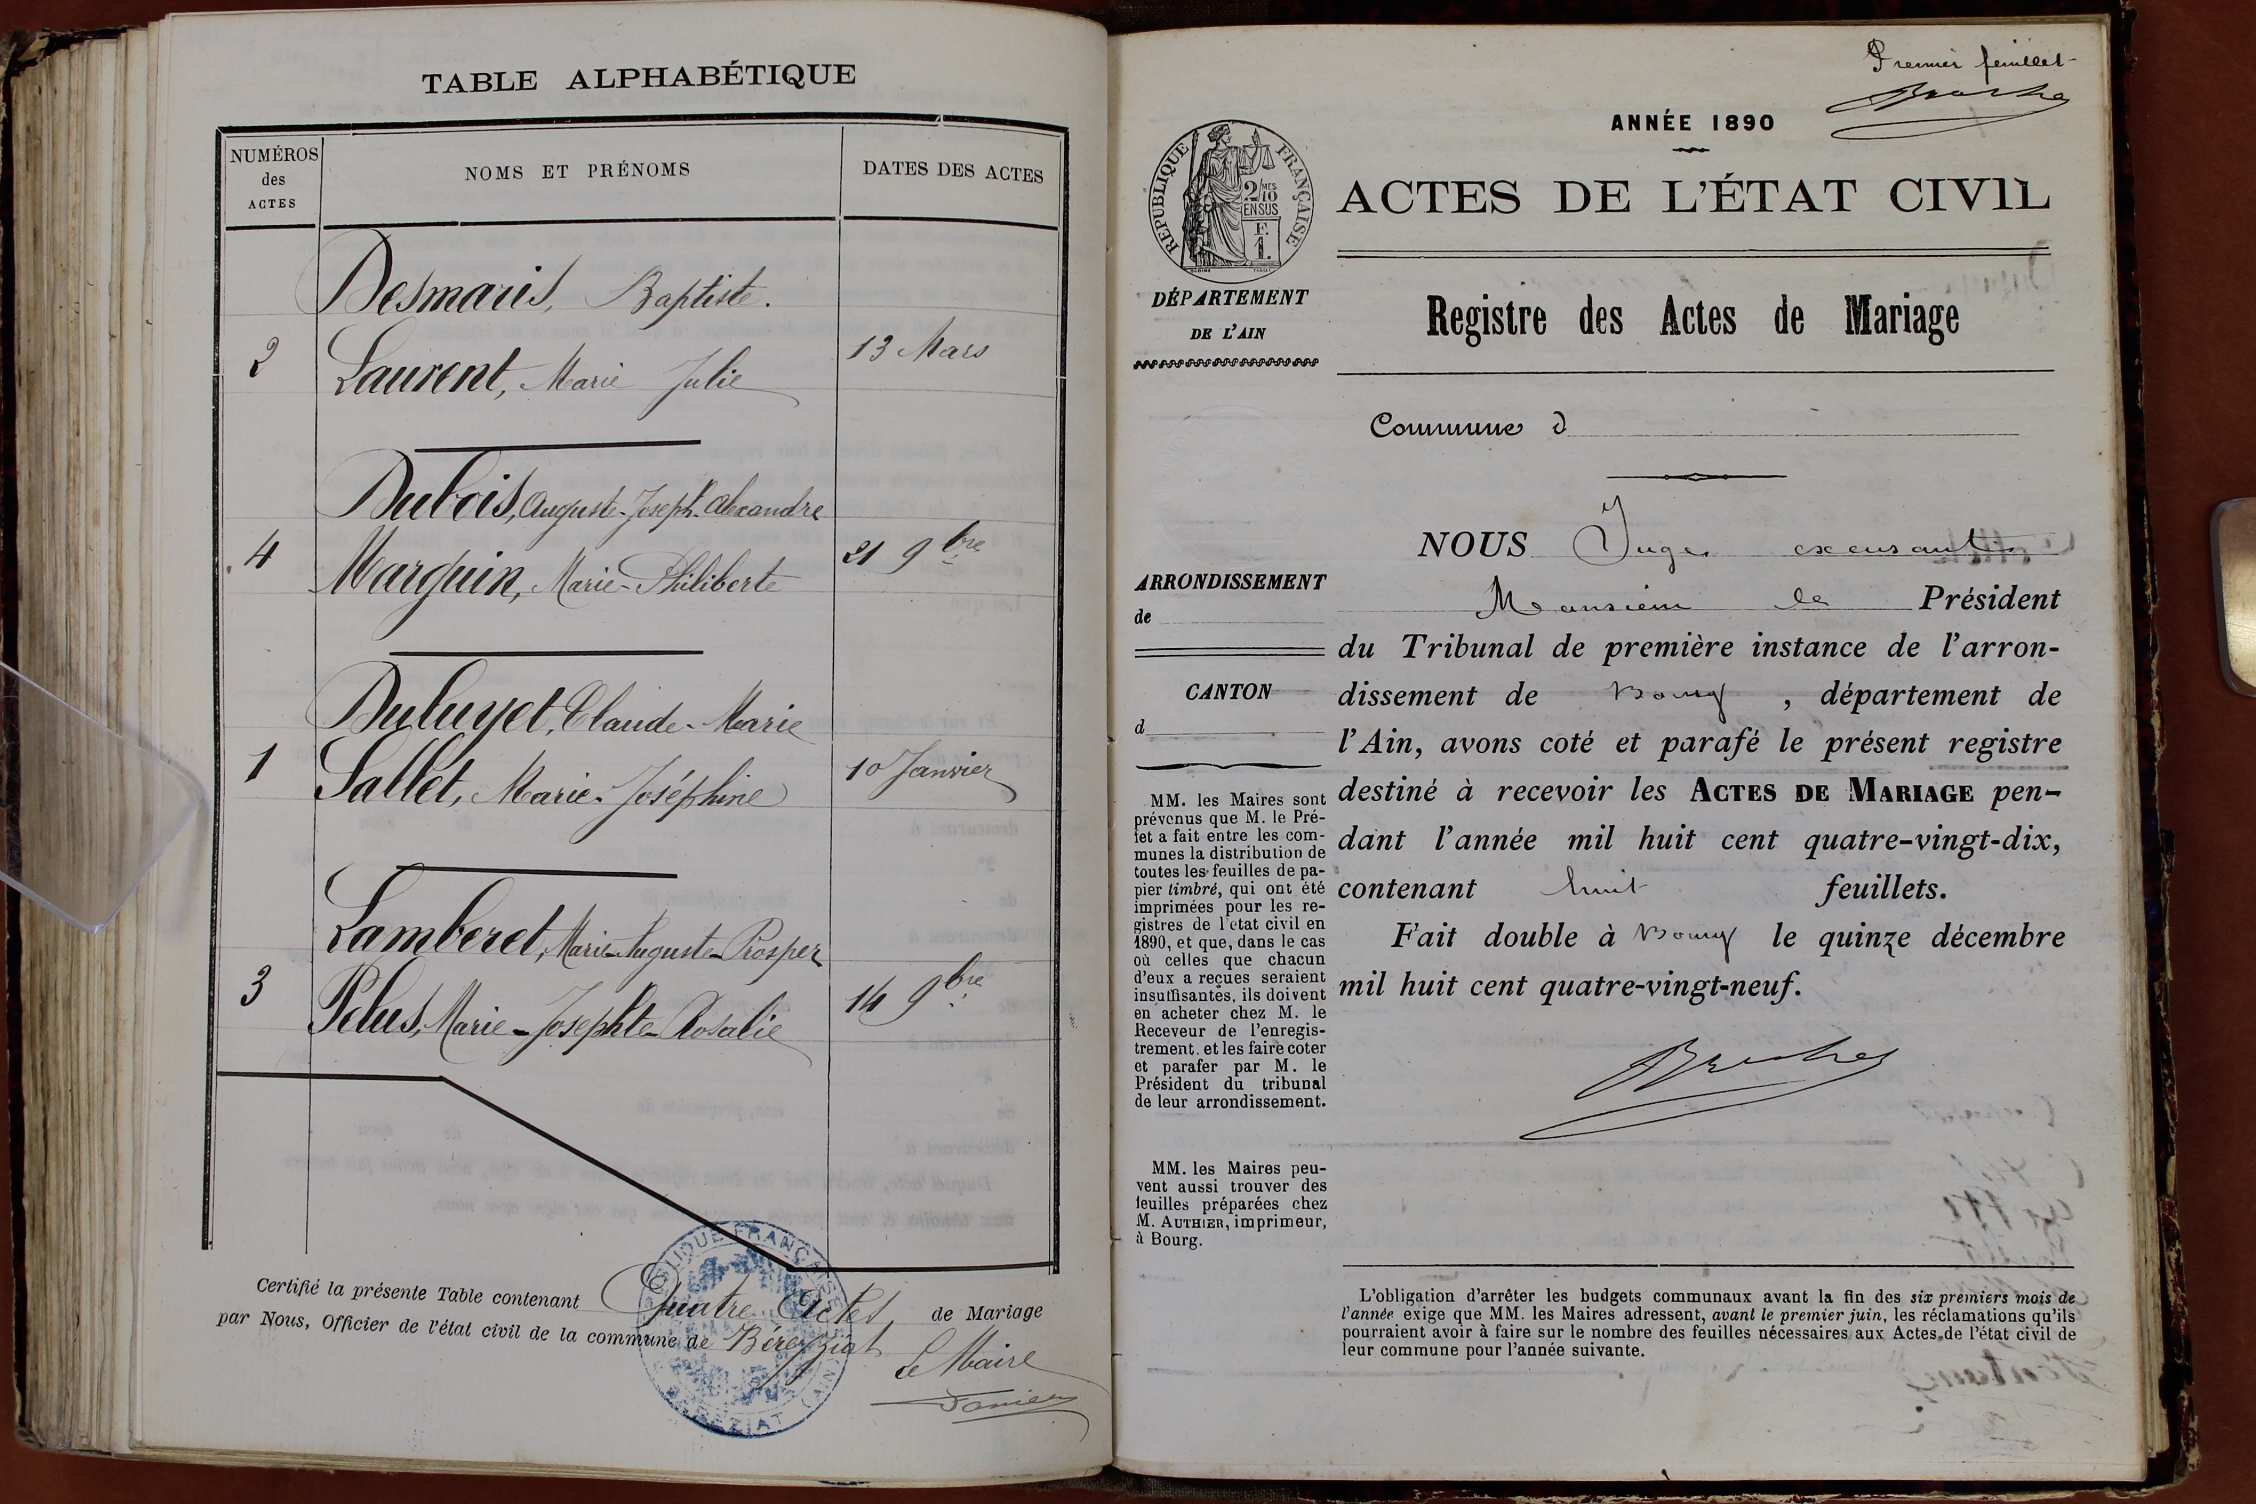 TABLE ALPHABÉTIQUE
NUMÉROS
des
ACTES
NOMS ET PRÉNOMS
DATES DES ACTES
Desmaris, Baptiste.
2
Laurent, Marie Julie
13 Mars
Dubois, Auguste-Joseph-Alexandre
4
Marguin, Marie-Philiberte
21 9bre
Duluyet, Claude-Marie
1
Sallet, Marie-Joséphine
10 Janvier
Lamberet, Marie-Auguste-Prosper
3
Pelus, Marie-Josephte-Rosalie
14 9bre
Certifié la présente Table contenant Quatre Actes, de Mariage
par Nous, Officier de l'état civil de la commune de Béreyziat
Le Maire
Premier feuillet
ANNÉE 1890
RÉPUBLIQUE FRANÇAISE
2/10 MES
EN SUS
F.
1.
ACTES DE L'ÉTAT CIVIL
DÉPARTEMENT
DE L'AIN
Registre des Actes de Mariage
Commune d
NOUS Juge excusant
Monsieur le Président
du Tribunal de première instance de l'arron-
dissement de Bourg, département de
l'Ain, avons coté et parafé le présent registre
destiné à recevoir les ACTES DE MARIAGE pen-
dant l'année mil huit cent quatre-vingt-dix,
contenant huit feuillets.
Fait double à Bourg le quinze décembre
mil huit cent quatre-vingt-neuf.
ARRONDISSEMENT
de
CANTON
d
MM. les Maires sont
prévenus que M. le Pré-
fet a fait entre les com-
munes la distribution de
toutes les feuilles de pa-
pier timbré, qui ont été
imprimées pour les re-
gistres de l'état civil en
1890, et que, dans le cas
où celles que chacun
d'eux a reçues seraient
insuffisantes, ils doivent
en acheter chez M. le
Receveur de l'enregis-
trement. et les faire coter
et parafer par M. le
Président du tribunal
de leur arrondissement.
MM. les Maires peu-
vent aussi trouver des
feuilles préparées chez
M. AUTHIER, imprimeur,
à Bourg.
L'obligation d'arrêter les budgets communaux avant la fin des six premiers mois de
l'année exige que MM. les Maires adressent, avant le premier juin, les réclamations qu'ils
pourraient avoir à faire sur le nombre des feuilles nécessaires aux Actes de l'état civil de
leur commune pour l'année suivante.